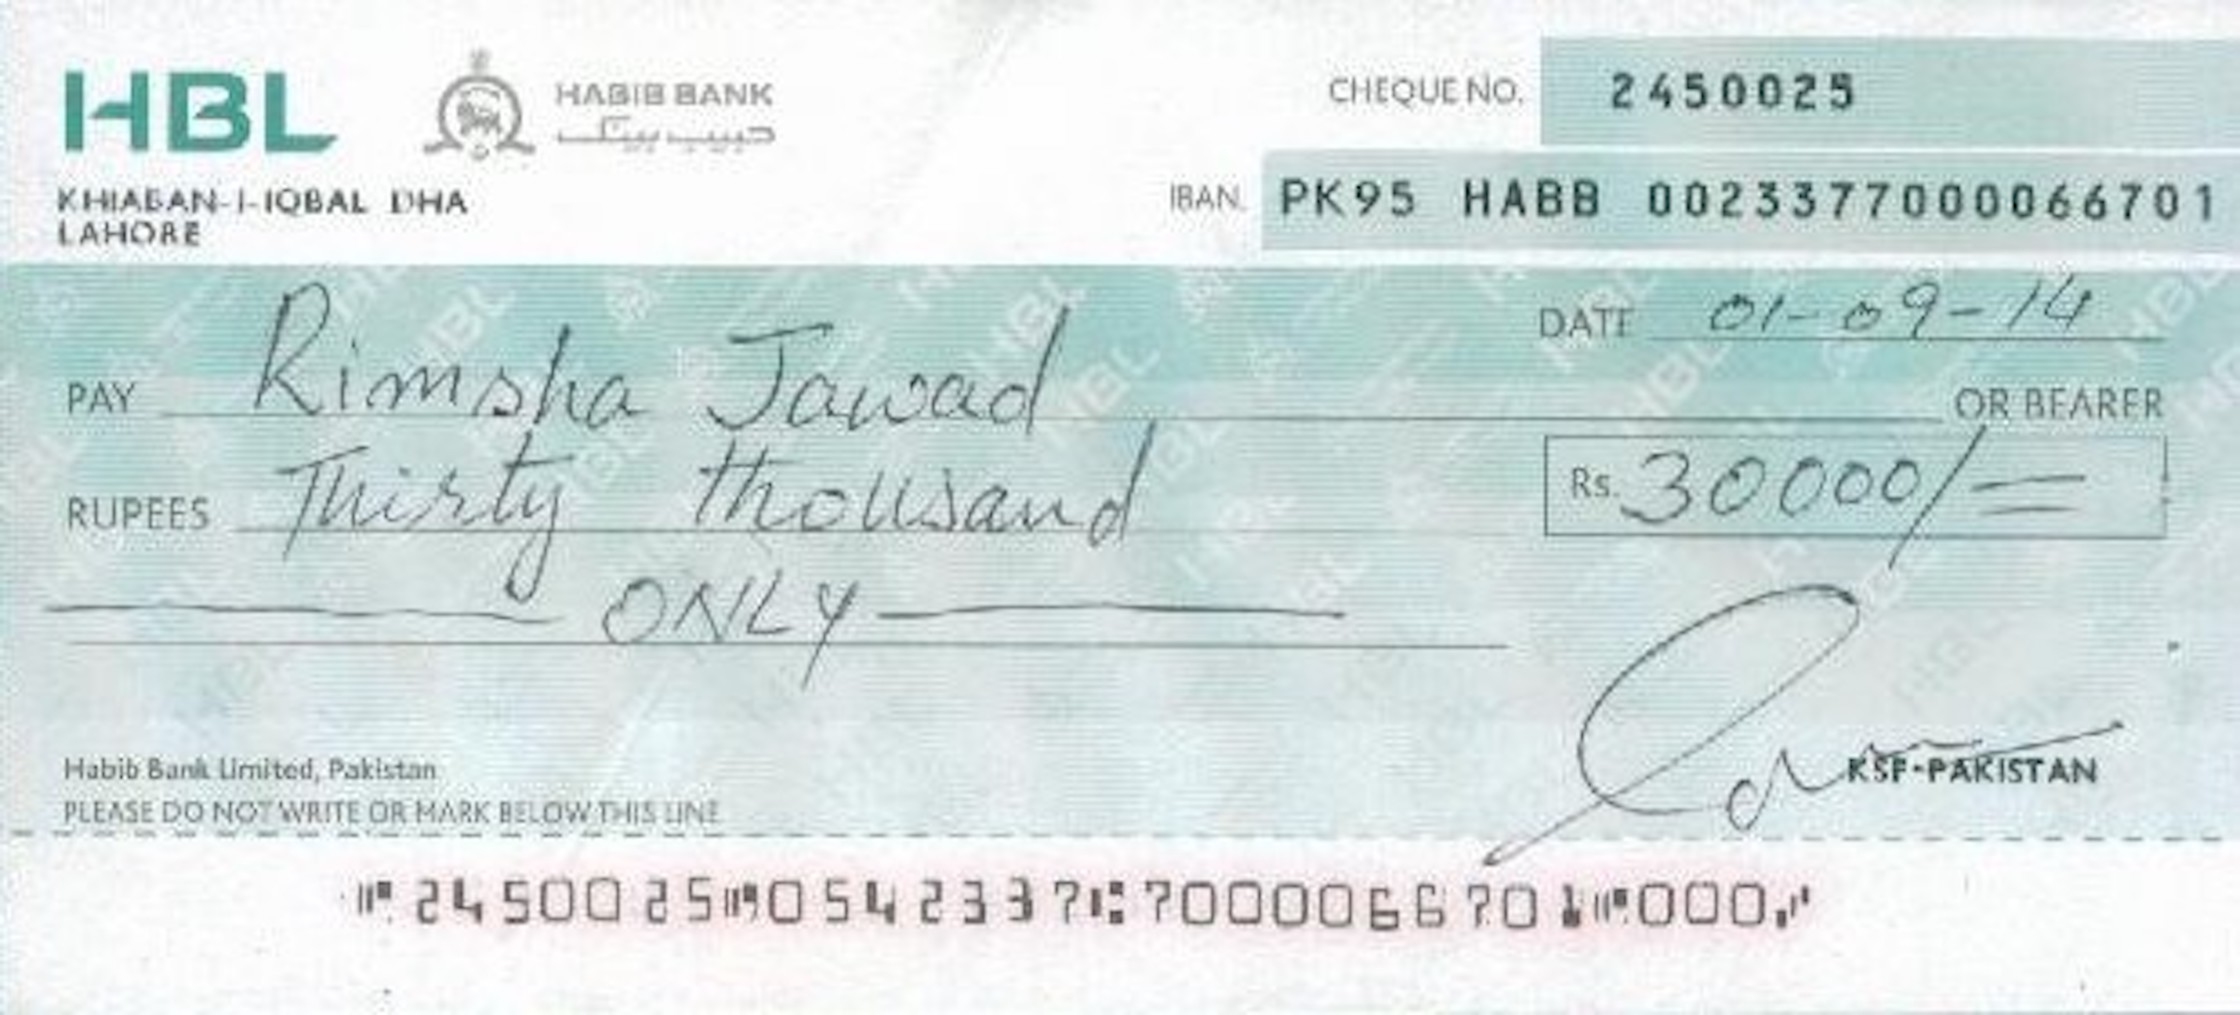 HBL HABIB BANK
حبیب بینک
KHIABAN-I-IQBAL DHA
LAHORE
CHEQUE NO. 2450025
IBAN. PK95 HABB 0023377000066701
DATE 01-09-14
PAY Rimsha Jawad OR BEARER
RUPEES Thirty Thousand Rs. 30000/=
ONLY
KSF-PAKISTAN
Habib Bank Limited, Pakistan
PLEASE DO NOT WRITE OR MARK BELOW THIS LINE
⑈2450025⑈0542337⑆7000066701⑈000⑈